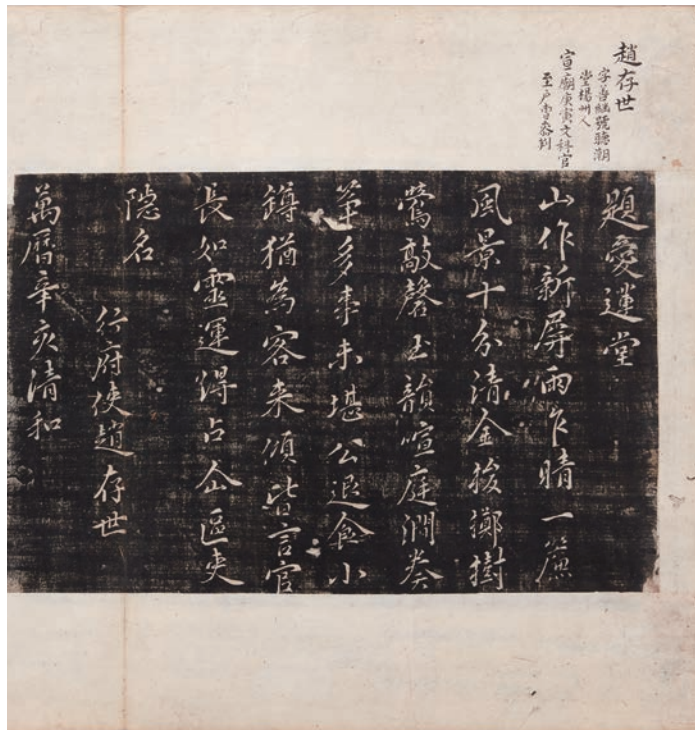 趙存世
字善繼號聽潮
堂楊州人
宣廟庚寅文科官
至戶曹參判
題愛蓮堂
山作新屏雨乍晴一簾
風景十分清金梭擲樹
鶯敲磬玉韻喧庭澗奏
笙多事未堪公退食小
鐏猶為客來傾皆言官
長如靈運得占仚區吏
隠名
行府使趙存世
萬曆辛亥清和